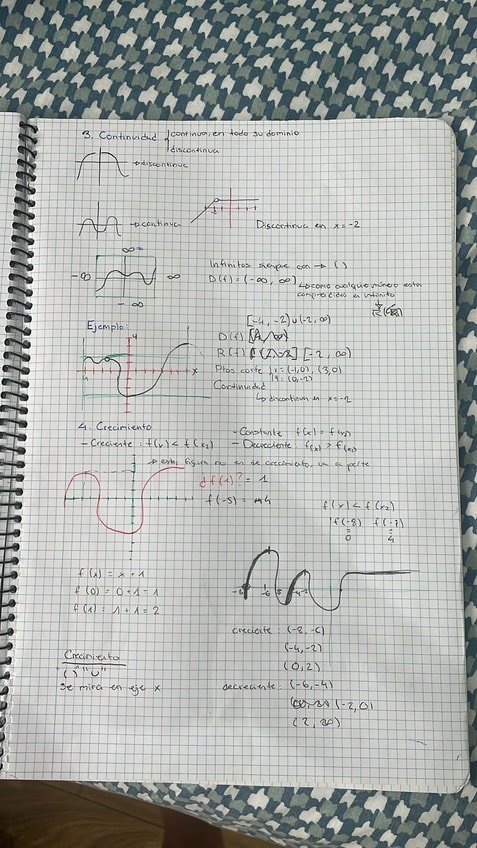 3. Continuidad
continua, en todo su dominio
discontinua
→ discontinua
→ continua
Discontinua en x = -2
∞
-∞
∞
-∞
Infinitos siempre con → ( )
D(f) = (-∞, ∞)
↳ como cualquier número están comprendidos en infinito
Ejemplo:
[-4, -2) ∪ (-2, ∞)
D(f)
R(f) [-2, ∞)
Ptos corte x = (-1,0), (3,0)
y = (0,-2)
Continuidad
↳ discontinua en x = -2
4. Crecimiento
- Constante f(x₁) = f(x₂)
- Creciente: f(x₁) < f(x₂)
- Decreciente: f(x₁) > f(x₂)
→ esta figura no es de crecimiento, es aparte
¿f(1)? = 1
f(-5) = 4
f(x) < f(x₂)
f(-8) f(-7)
0 4
f(x) = x + 1
f(0) = 0 + 1 = 1
f(1) = 1 + 1 = 2
creciente: (-8, -6)
(-4, -2)
(0, 2)
Crecimiento
( ) "∪"
Se mira en eje x
decreciente: (-6, -4)
(-2, 0)
(2, ∞)